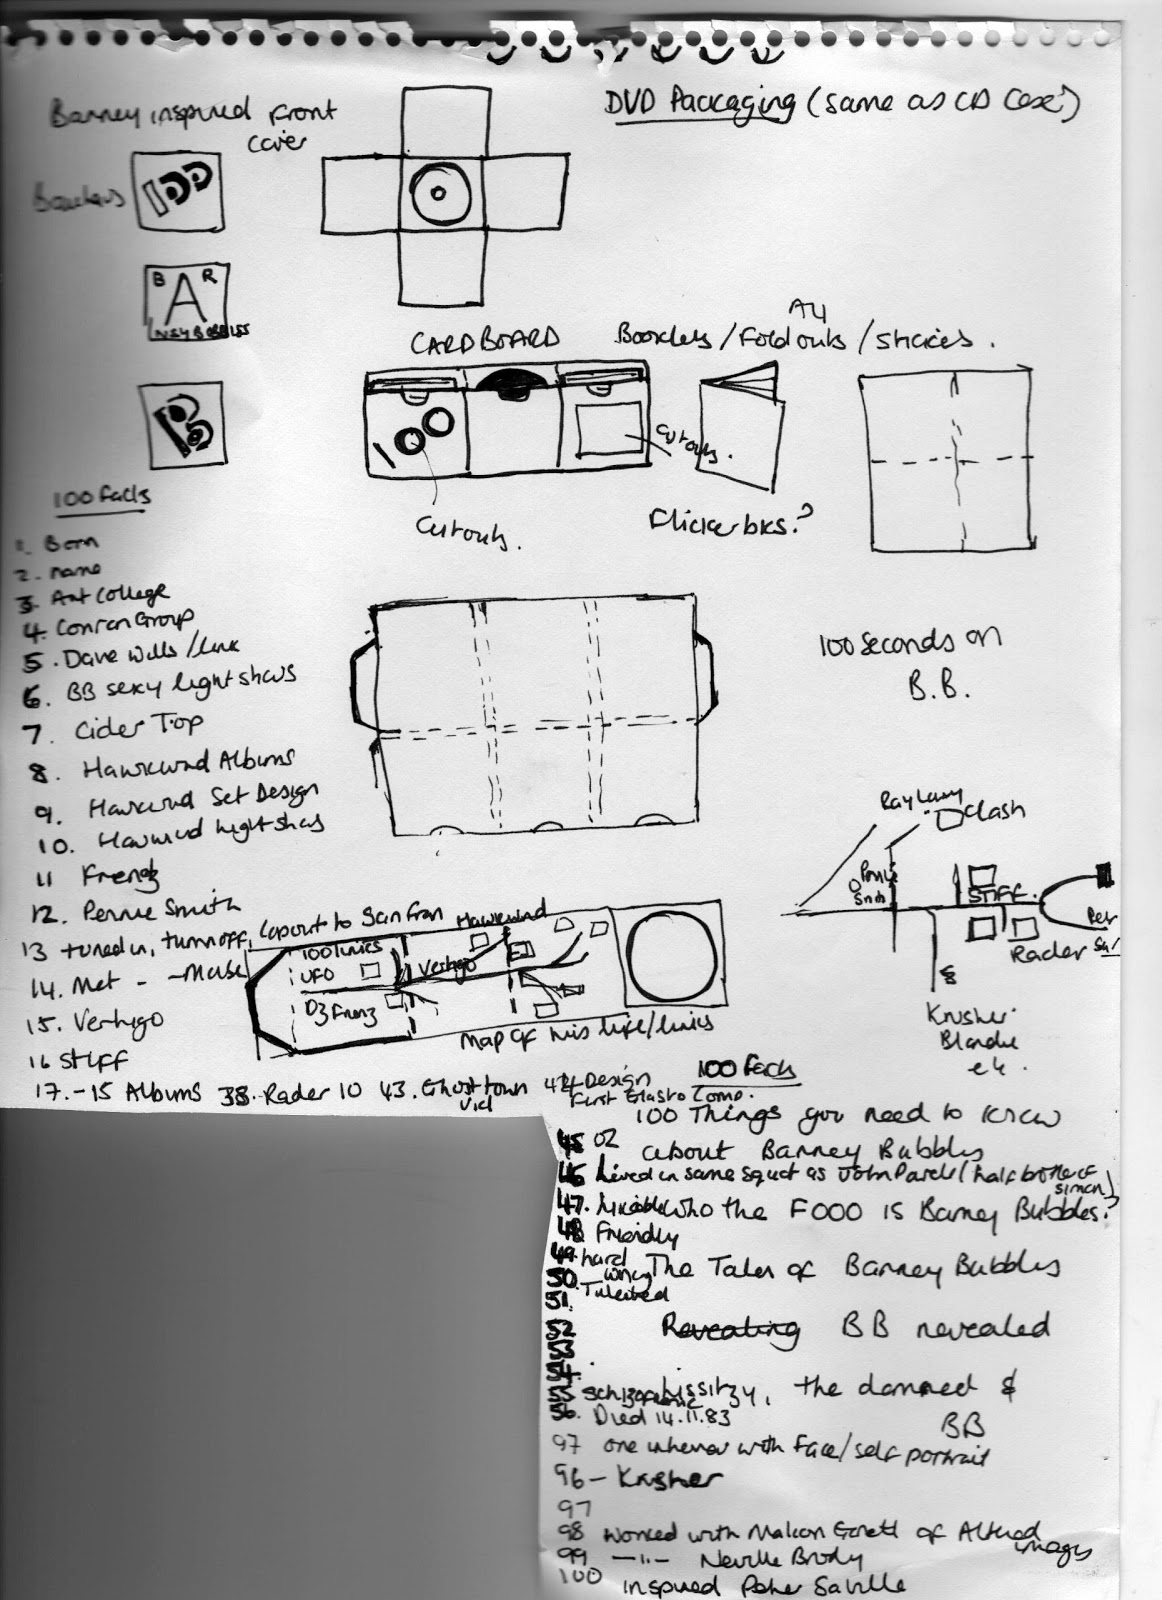 DVD Packaging (same as CD Case)
Barney inspired Front
cover
Bauhaus
B A R
CARDBOARD
A4
Booklets / Fold outs / Stickies.
Cutouts.
Cutouts.
Flicker bks?
100 Facts
1. Born
2. name
3. Art College
4. Conran Group
5. Dave Wills/link
6. BB sexy light shows
7. Cider Top
8. Hawkwind Albums
9. Hawkwind Set Design
10. Hawkwind light shows
11 Frenz
12. Pennie Smith
13 tuned in, turn off, copout to San Fran
14. Met - -
15. Vertigo
16 Stiff
17.-15 Albums 38. Rader 10 43. Ghost town Vid 44 Design First Elasto Comp.
100 seconds on
B.B.
Ray Lowry
Clash
STIFF.
Rader
Krusher
Blondie
etc.
Hawkwind
100 links
UFO
Vertigo
Oz Frenz
Map of his life/links
100 Facts
100 Things you need to know
about Barney Bubbles
45 OZ
46 Lived in same squat as John (half brother of simon)
47. likeable
Who the F000 is Barney Bubbles?
48 Friendly
49. hard
50. working
The Tales of Barney Bubbles
51. Talented
52
Revealing BB revealed
53
54.
55 Schizophrenic
Lissitzy, the damned &
BB
56. Died 14.11.83
97 one with Face/self portrait
96 - Krusher
97
98 Worked with Malcom Garett of Altered images
99 -"- Neville Brody
100 inspired Peter Saville